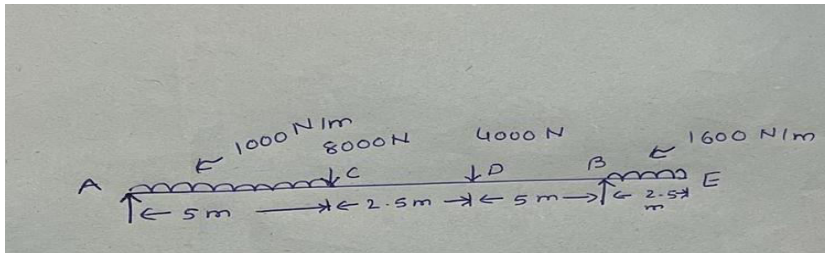 1000 N/m
8000N
4000 N
1600 N/m
A
C
D
B
E
5m
2.5m
5m
2.5
m